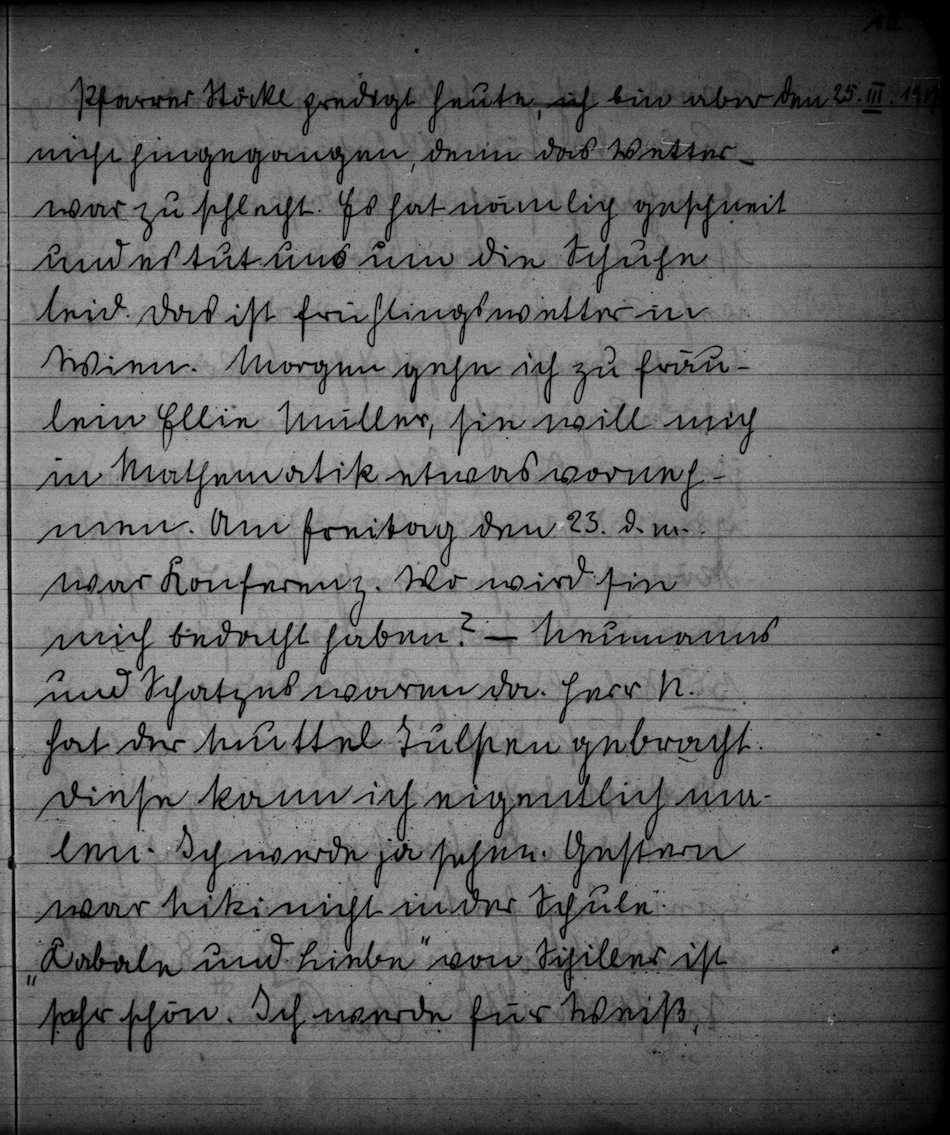 Pfarrer Stöckl predigt heute, ich bin aber den 25. III. 1917
nicht hingegangen, denn das Wetter
war zu schlecht. Es hat nämlich geschneit
und es tut uns um die Schuhe
leid. Das ist Frühlingswetter in
Wien. Morgen gehe ich zu Fräu-
lein Ellie Müller, sie will mich
in Mathematik etwas vorneh-
men. Am Freitag den 23. d. m.
war Konferenz. Wo wird sie
mich bedacht haben? — Neumanns
und Schatzes waren da. Herr N.
hat der Muttel Tulpen gebracht.
Diese kann ich eigentlich ma-
len. Ich werde ja sehen. Gestern
war Niki nicht in der Schule.
„Kabale und Liebe" von Schiller ist
sehr schön. Ich werde für Weiß,